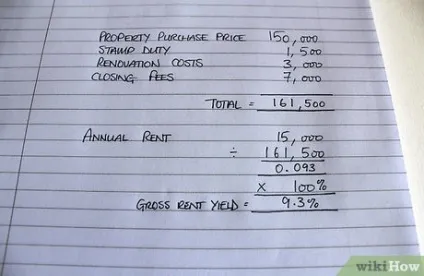 PROPERTY PURCHASE PRICE 150,000
STAMP DUTY 1,500
RENOVATION COSTS 3,000
CLOSING FEES 7,000
TOTAL = 161,500
ANNUAL RENT 15,000
÷ 161,500
0.093
X 100%
GROSS RENT YIELD = 9.3%
wikiHow